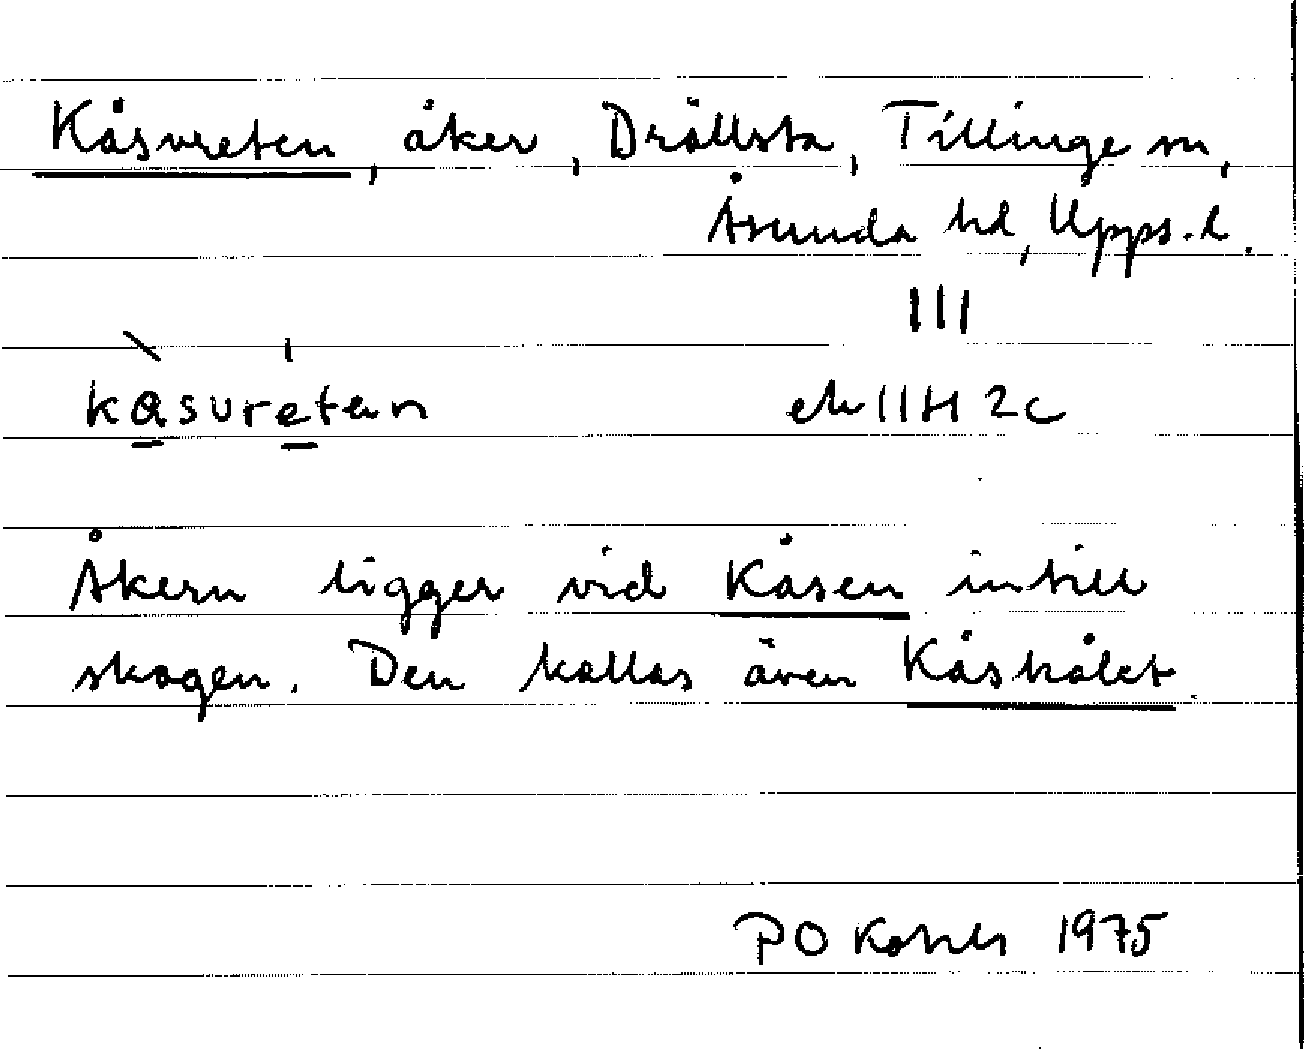 Kåsvreten, åker, Drällsta, Tillinge sn,
Åsunda hd, Upps. l.
III
kasvretan
ek 11H 2c
Åkern ligger vid Kåsen intill
skogen. Den kallas även Kåshålet.
PO 1975